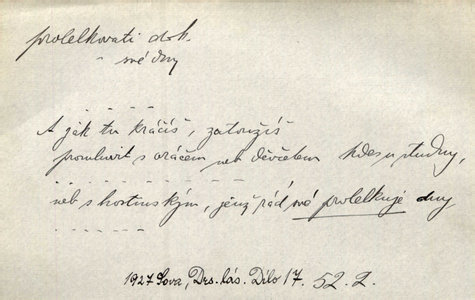 prolelkovati dok.
" své dny
- - - - - -
A jak tu kráčíš, zatoužíš
promluvit s oráčem neb děvčetem kdes u studny,
. . . . . . . . . . . . .
neb s hostinským, jenž rád své prolelkuje dny
. . . . . .
1927 Sova, Drs. lás. Dílo 17. 52. Z.